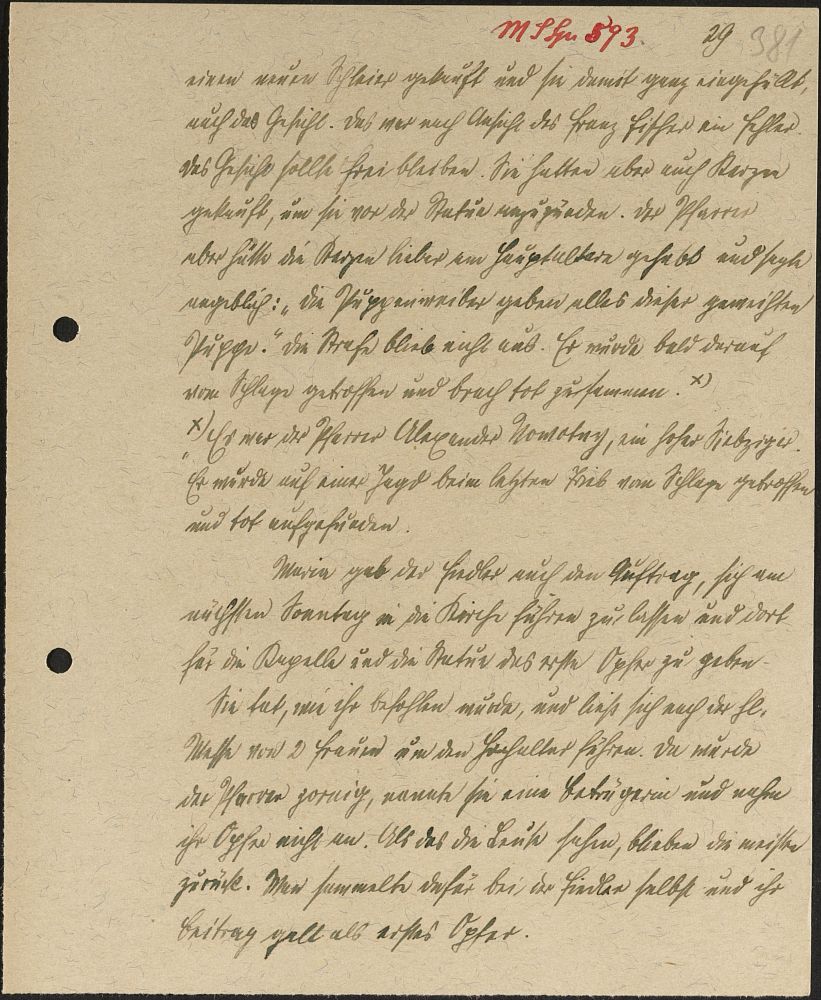 MS Hn 593. 29 381
einen neuen Schleier gekauft und sie damit ganz eingehüllt,
auch das Gesicht. Das war nach Ansicht des Franz Fischer ein Fehler.
Das Gesicht sollte frei bleiben. Sie hatten aber auch Kerzen
gekauft, um sie vor der Statue anzuzünden. Der Pfarrer
aber hätte die Kerzen lieber am Hauptaltare gehabt und sagte
angeblich: „Die Puppenweiber geben alles dieser geweihten
Puppe." Die Strafe blieb nicht aus. Er wurde bald darauf
vom Schlage getroffen und brach tot zusammen. x)
x) Es war der Pfarrer Alexander Nowotny, ein hoher Siebziger.
Er wurde auf einer Jagd beim letzten Trieb vom Schlage getroffen
und tot aufgefunden.
Maria gab der Fiedler auch den Auftrag, sich am
nächsten Sonntag in die Kirche führen zu lassen und dort
für die Kapelle und die Statue das erste Opfer zu geben.
Sie tat, wie ihr befohlen wurde, und ließ sich nach der hl.
Messe von 2 Frauen um den Hochaltar führen. Da wurde
der Pfarrer zornig, nannte sie eine Betrügerin und nahm
ihr Opfer nicht an. Als das die Leute sahen, blieben die meisten
zurück. Man sammelte dafür bei der Fiedler selbst und ihr
Beitrag galt als erstes Opfer.